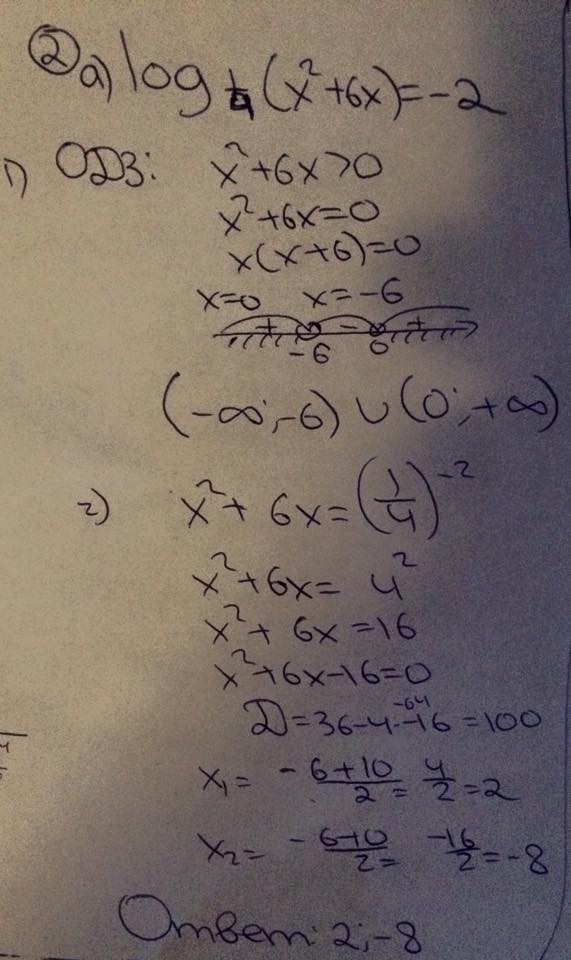 ② а) log 1/4 (x² + 6x) = -2
1) ОДЗ: x² + 6x > 0
x² + 6x = 0
x(x + 6) = 0
x = 0 x = -6
+ - +
-6 0
(-∞; -6) ∪ (0; +∞)
2) x² + 6x = (1/4)⁻²
x² + 6x = 4²
x² + 6x = 16
x² + 6x - 16 = 0
-64
D = 36 - 4·-16 = 100
x₁ = -6+10/2 = 4/2 = 2
x₂ = -6-10/2 = -16/2 = -8
Ответ: 2; -8